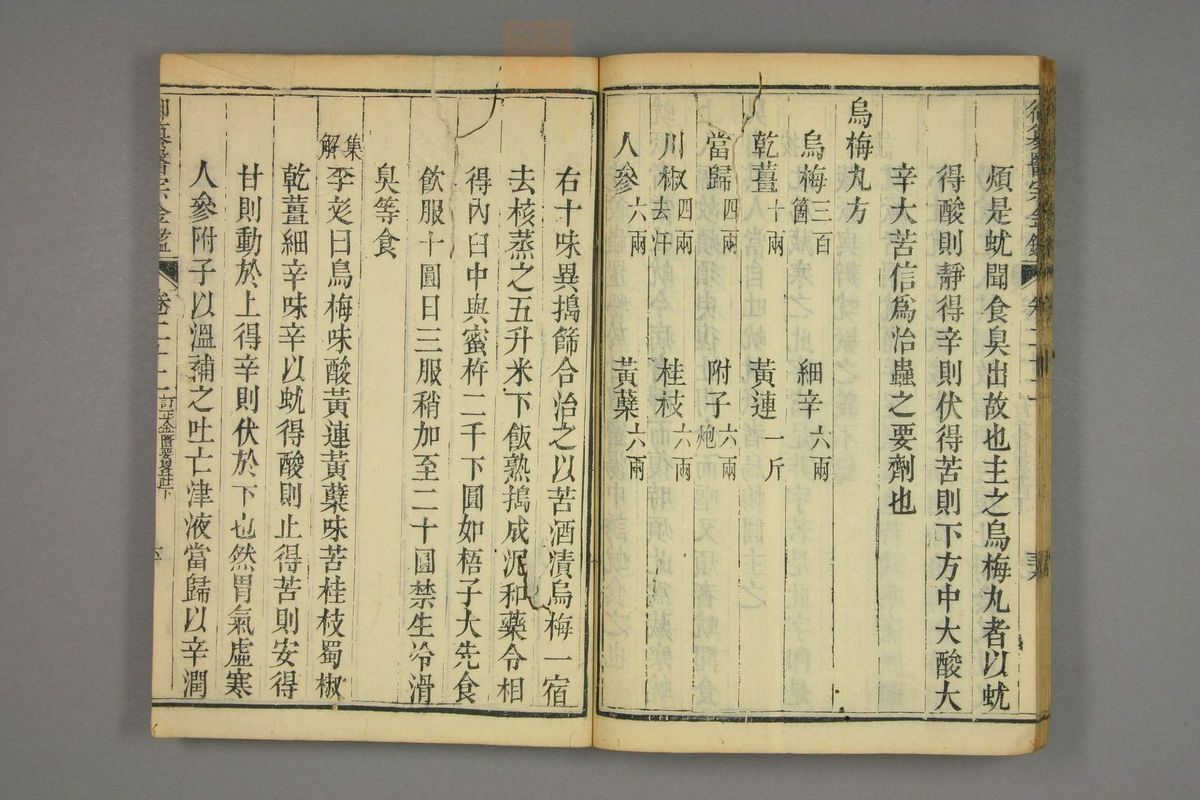 煩是蚘聞食臭出故也主之烏梅丸者以蚘
得酸則靜得辛則伏得苦則下方中大酸大
辛大苦信爲治蟲之要劑也
烏梅丸方
烏梅三百箇 細辛六兩
乾薑十兩 黃連一斤
當歸四兩 附子六兩炮
川椒四兩去汗 桂枝六兩
人參六兩 黃蘗六兩
右十味異搗篩合治之以苦酒漬烏梅一宿
去核蒸之五升米下飯熟搗成泥和藥令相
得內臼中與蜜杵二千下圓如梧子大先食
飲服十圓日三服稍加至二十圓禁生冷滑
臭等食
集解李彣曰烏梅味酸黃連黃蘗味苦桂枝蜀椒
乾薑細辛味辛以蚘得酸則止得苦則安得
甘則動於上得辛則伏於下也然胃氣虛寒
人參附子以溫補之吐亡津液當歸以辛潤
御纂醫宗金鑑 卷二十二 訂正金匱要畧註下